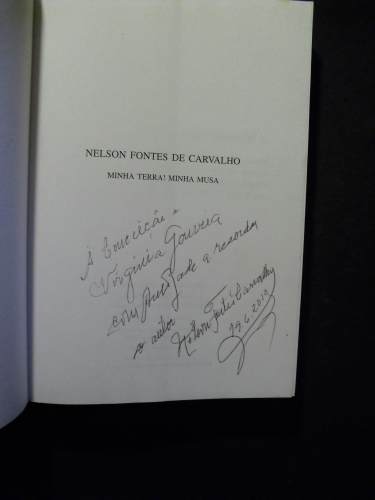 NELSON FONTES DE CARVALHO
MINHA TERRA! MINHA MUSA
À Conceição e
Virgínia Gouveia
com amizade a recordar
o autor
Nelson Fontes Carvalho
29.6.2010